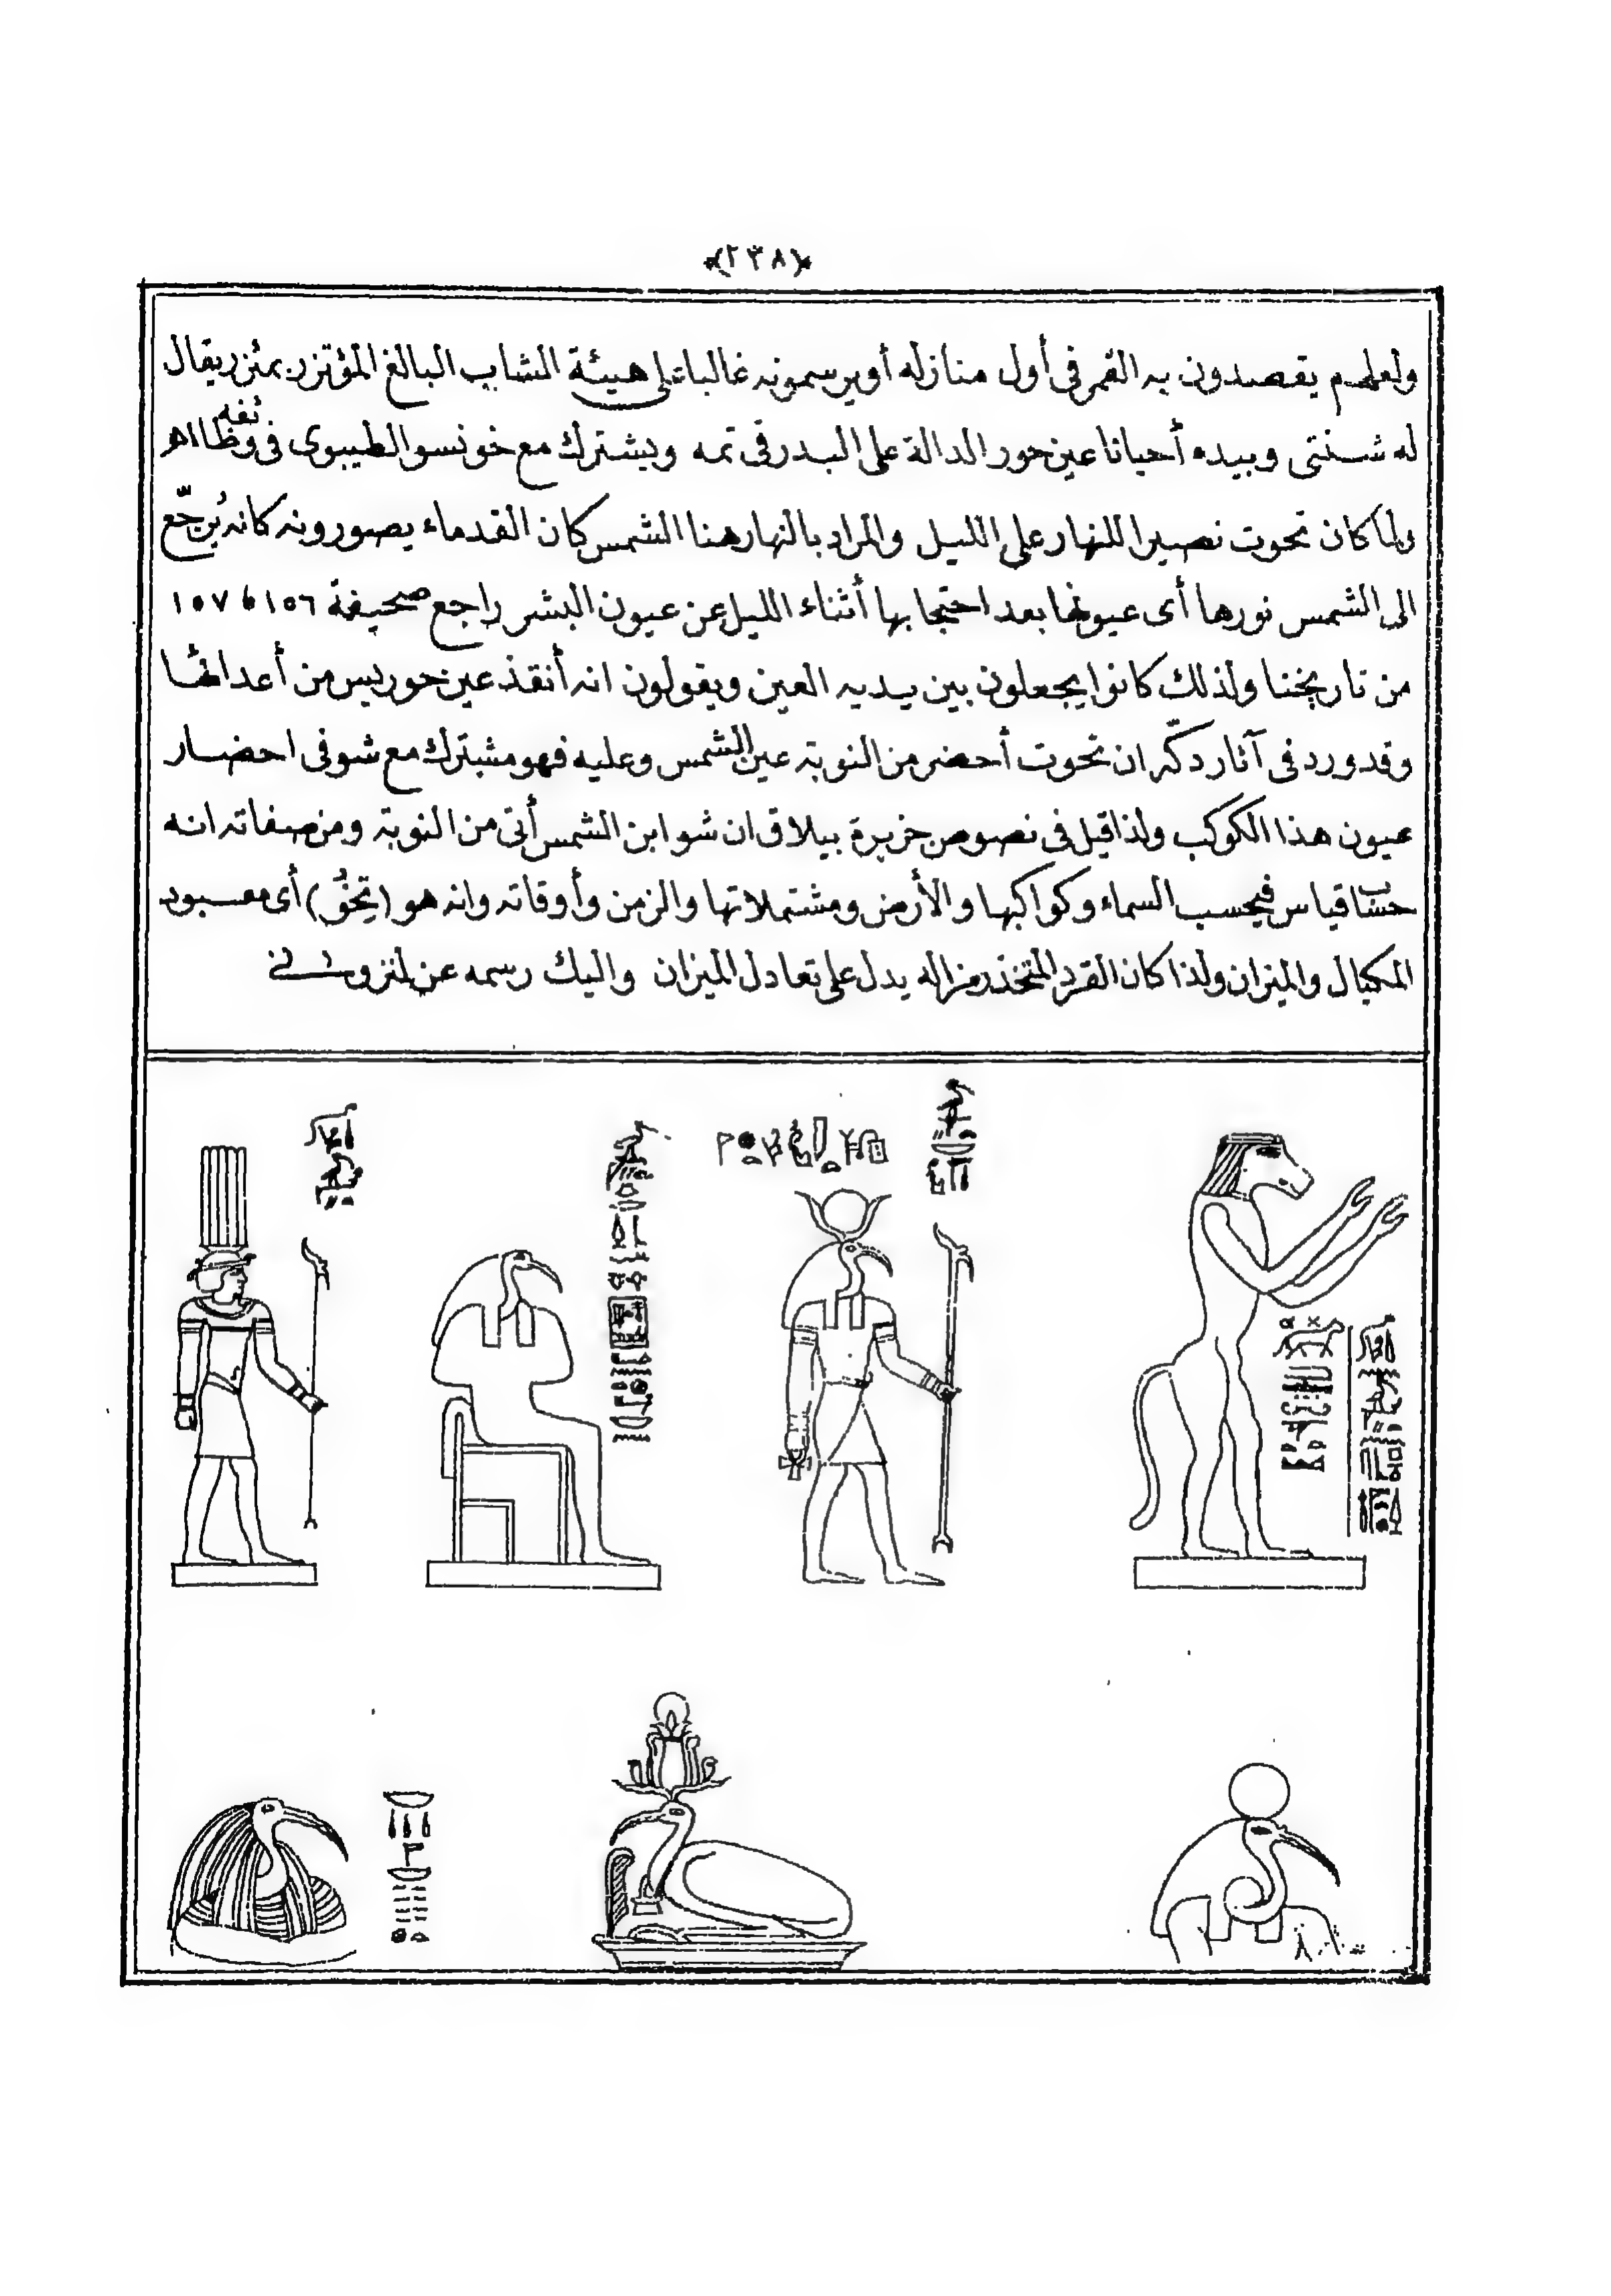 ﴿٢٣٨﴾
ولعلهم يقصدون به القمر فى أول منازله أو يرسمونه غالبا على هيئة الشاب البالغ المؤتزر بمئزر يقال
له شنتى وبيده أحيانا عين حور الدالة على البدر فى تمه ويشترك مع خونسو الطيبوى فى وظائفه اهـ
ولما كان تحوت نصيرا للنهار على الليل والمراد بالنهار هنا الشمس كان القدماء يصورونه كانه يُرجّع
الى الشمس نورها أى عيونها بعد احتجابها أثناء الليل عن عيون البشر راجع صحيفة ١٥٦ و ١٥٧
من تاريخنا ولذلك كانوا يجعلون بين يديه العين ويقولون انه أنقذ عين حوريس من أعدائها
وقد ورد فى آثار دكّه ان تحوت أحضر من النوبة عين الشمس وعليه فهو مشترك مع شو فى احضار
عيون هذا الكوكب ولذا قيل فى نصوص جزيرة بيلاق ان شو ابن الشمس أتى من النوبة ومن صفاته انه
حساب قياس فيحسب السماء وكواكبها والأرض ومشتملاتها والزمن وأوقاته وانه هو (تِخُو) أى معبود
المكيال والميزان ولذا كان القرد المتخذ رمزا له يدل على تعادل الميزان واليك رسمه عن لنزونى